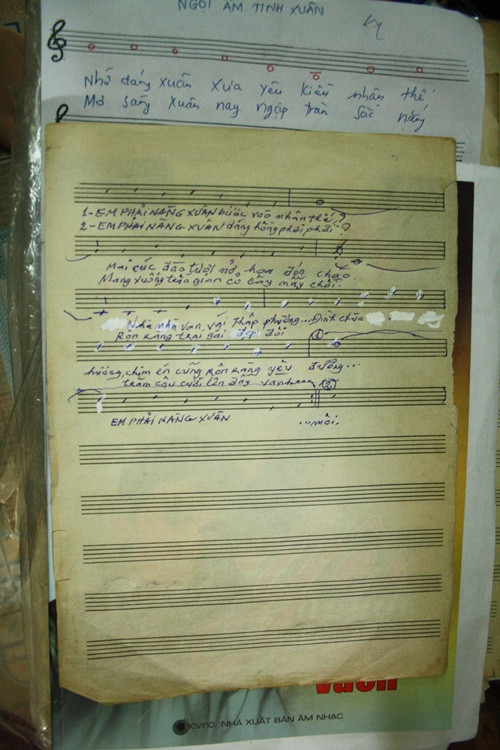 NGỌI ÂM TÌNH XUÂN
Nhớ dáng xuân xưa yêu kiều nhân thế
Mơ sáng xuân nay ngập tràn sắc nắng
1- EM PHẢI NÀNG XUÂN bước vào nhân thế?
2- EM PHẢI NÀNG XUÂN dáng hồng phơi phới?
Mai cúc đào tươi nở, hoa đón chào.
Mang xuống trần gian cỏ cây nảy chồi..
Nhã nhạc vang, vời thập phương... Đình chùa
Rộn ràng trai gái đẹp đôi
hương, chim én cũng rộn ràng yêu đương...
thắm sâu cười lên đây
EM PHẢI NÀNG XUÂN ...môi.
NHÀ XUẤT BẢN ÂM NHẠC